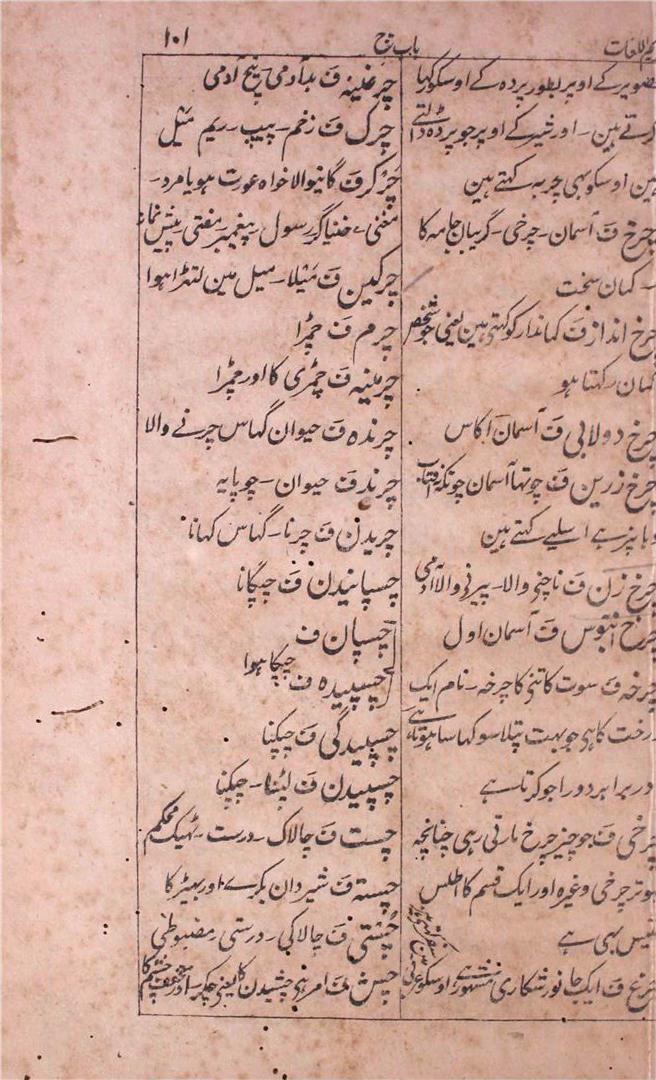 کریم اللغات باب چ ١٠١
تصویر کے اوپر بطور پردہ کے اوسکو کہا
کرتے ہین۔ اور شیر کے اوپر جو پردہ ڈالتے
ہین اوسکو بھی چربہ کہتے ہین
چرخ ف آسمان۔ چرخی۔ گریبان جامہ کا
۔ کمان سخت
چرخ انداز ف کماندار کو کہتے ہین یعنی جو شخص
کمان رکھتا ہو
چرخ دولابی ف آسمان آکاس
چرخ زرین ف چوتھا آسمان چونکہ آفتاب
وہان پر ہے اسلیے کہتے ہین
چرخ زن ف ناچنے والا۔ پھرنے والا آدمی
چرخ آبنوس ف آسمان اول
چرخہ ف سوت کاتنے کا چرخہ۔ نام ایک
درخت کا ہی جو بہت پتلا سوکھا سا ہوتا ہے
در برابر دورا جو کرتا ہے
چرخی ف جو چیز چرخ مارتی رہی چنانچہ
ہوتر چرخی وغیرہ اور ایک قسم کا اطلس
نفیس بھی ہے
چرغ ف ایک جانور شکاری مشہور ہے اوسکو عربی
چرغینہ ف بد آدمی پیچ آدمی
چرک ف زخم۔ پیپ۔ ریم مثیل
چرگر ف گانیوالا خواہ عورت ہو یا مرد۔
مغنی۔ خنیاگر رسول پیغمبر مفتی پیش نماز
چرکین ف میلا۔ میل مین لتھڑا ہوا
چرم ف چمڑا
چرمینہ ف چمڑی کا اور چمڑا
چرندہ ف حیوان گھاس چرنے والا
چرند ف حیوان۔ چوپایہ
چریدن ف چرنا۔ گھاس کھانا
چسپانیدن ف چپکانا
چسپان ف
چپکا ہوا
چسپیدہ ف
چسپیدگی ف چپکنا
چسپیدن ف لپٹنا۔ چپکنا
چست ف چالاک۔ درست۔ ٹھیک محکم
چستہ ف شیردان بکرے اور بھیڑ کا
چستی ف چالاکی۔ درستی مضبوطی
چش ف امر ہے چشیدن کا یعنی چکھ۔ اور مخفف چشم کا